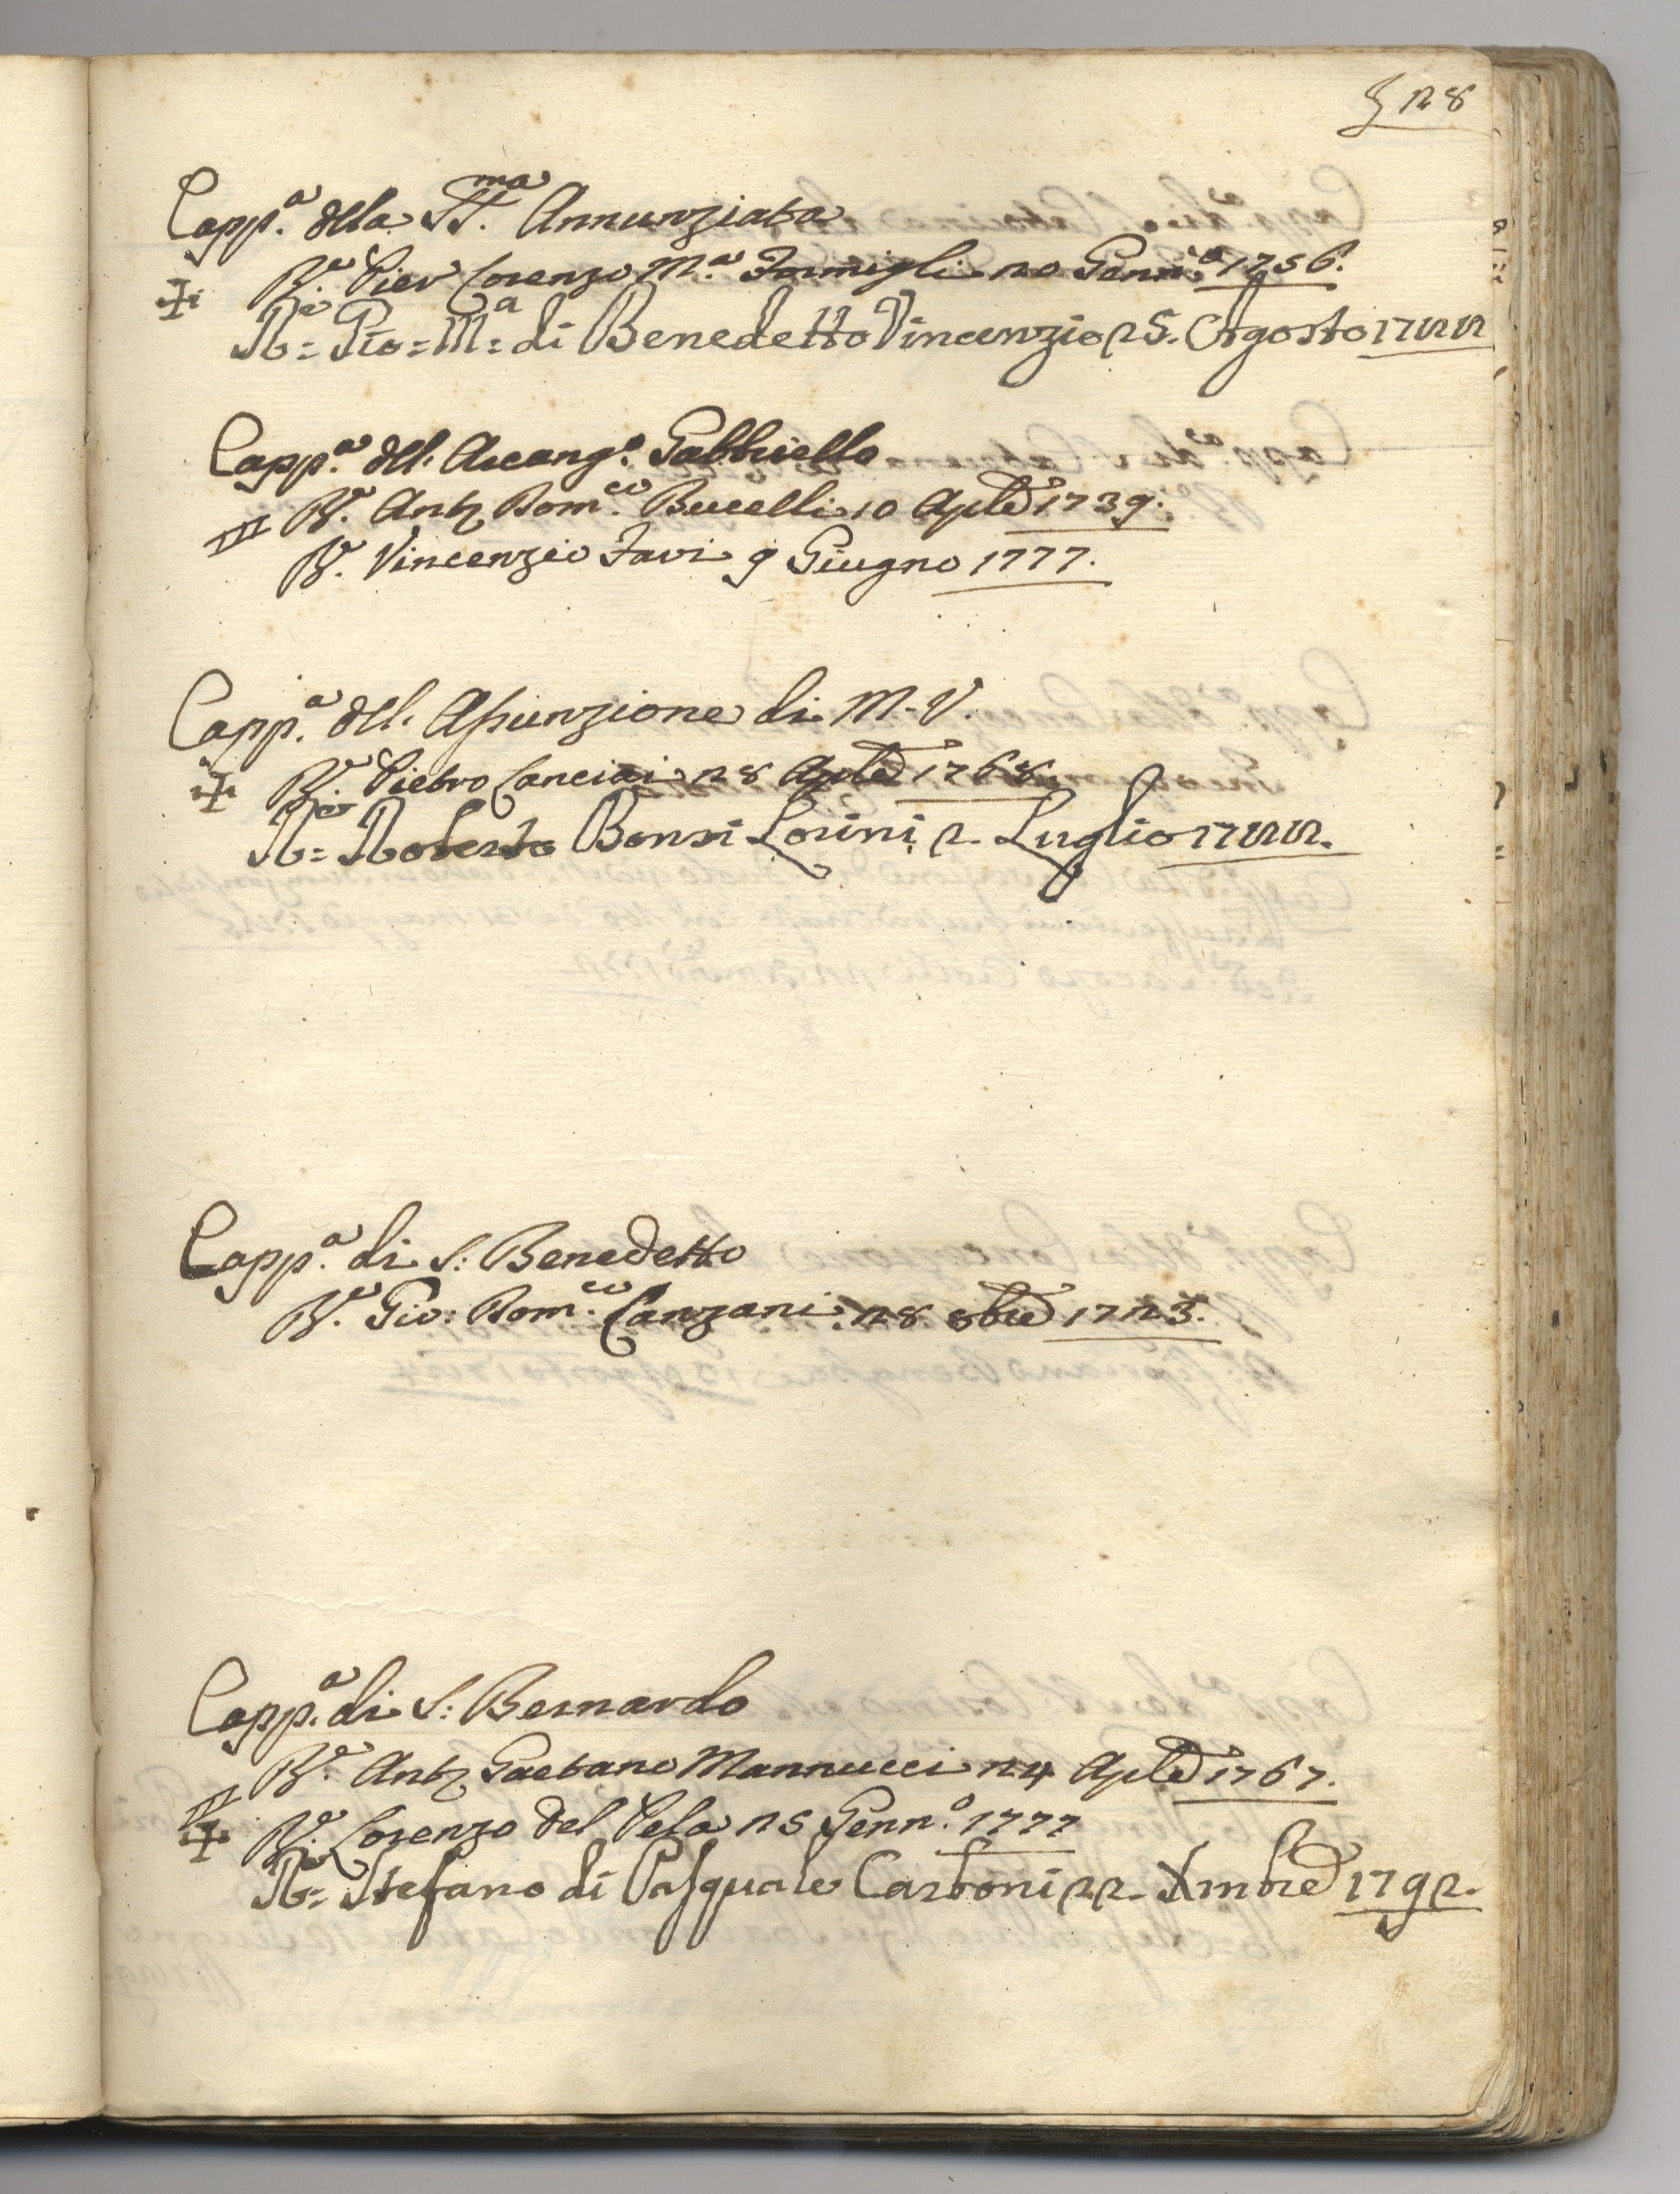 128
Capp.a della SS.ma Annunziata
R.e Pier Lorenzo M.a Formigli 20 Genn.o 1756.
R.do Pio = M.a di Benedetto Vincenzio 25. Agosto 1788
Capp.a dell. Arcang.o Gabbriello
R.e Ant.o Dom.co Bucelli 10 Aple 1739.
R.e Vincenzio Favi 9 Giugno 1777.
Capp.a dell. Assunzione di M. V.
R.e Pietro Lanciai 28 Aple 1768.
R.do Roberto Bonsi Lorini 2. Luglio 1788.
Capp.a di S: Benedetto
R.e Gio: Dom.co Canzani 28 8bre 1723.
Capp.a di S: Bernardo
R.e Ant.o Gaetano Mannucci 24 Aple 1767.
R.e Lorenzo del Pela 25 Genn.o 1777
R.do Stefano di Pasquale Carboni 22. Xmbre 1792.